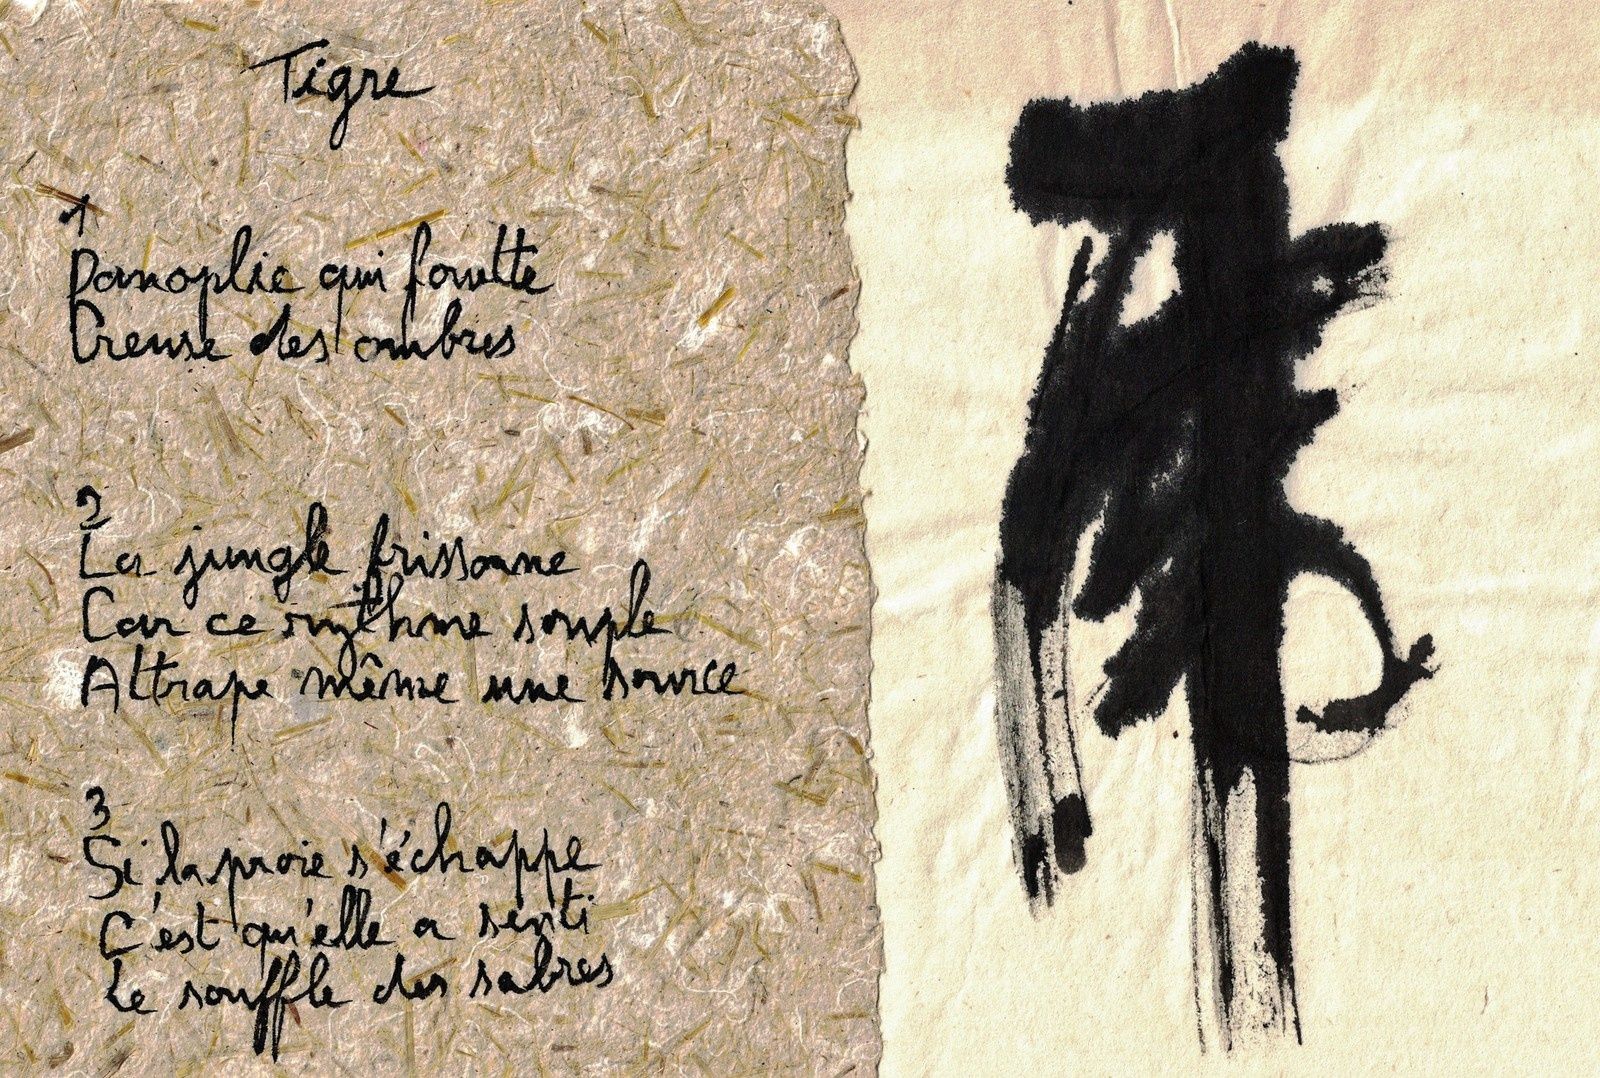 Tigre
1
Panoplie qui fouette
Creuse des ombres
2
La jungle frissonne
Car ce rythme souple
Attrape même une source
3
Si la proie s'échappe
C'est qu'elle a senti
Le souffle des sabres